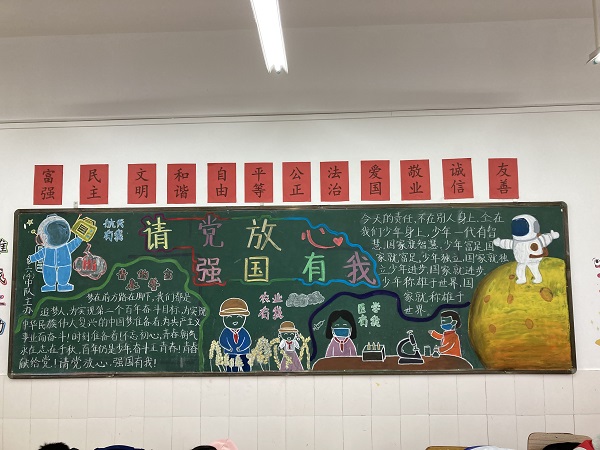 富强 民主 文明 和谐 自由 平等 公正 法治 爱国 敬业 诚信 友善
请党放心
强国有我
航天
有我
六中队主办
农业
有我
医学
有我
梦在前方路在脚下,我们都是
追梦人,为实现第一个百年奋斗目标,为实现
中华民族伟大复兴的中国梦准备着为共产主义
事业而奋斗!时刻准备着
初心,青春朝气
永在志在千秋,百年仍是少年奋斗正青春!青春
献给党!请党放心,强国有我!
今天的责任,不在别人身上,全在
我们少年身上,少年一代有智
慧,国家就智慧,少年富足,国
家就富足,少年独立,国家就独
立,少年进步,国家就进步,
少年称雄于世界,国
家就称雄于
世界